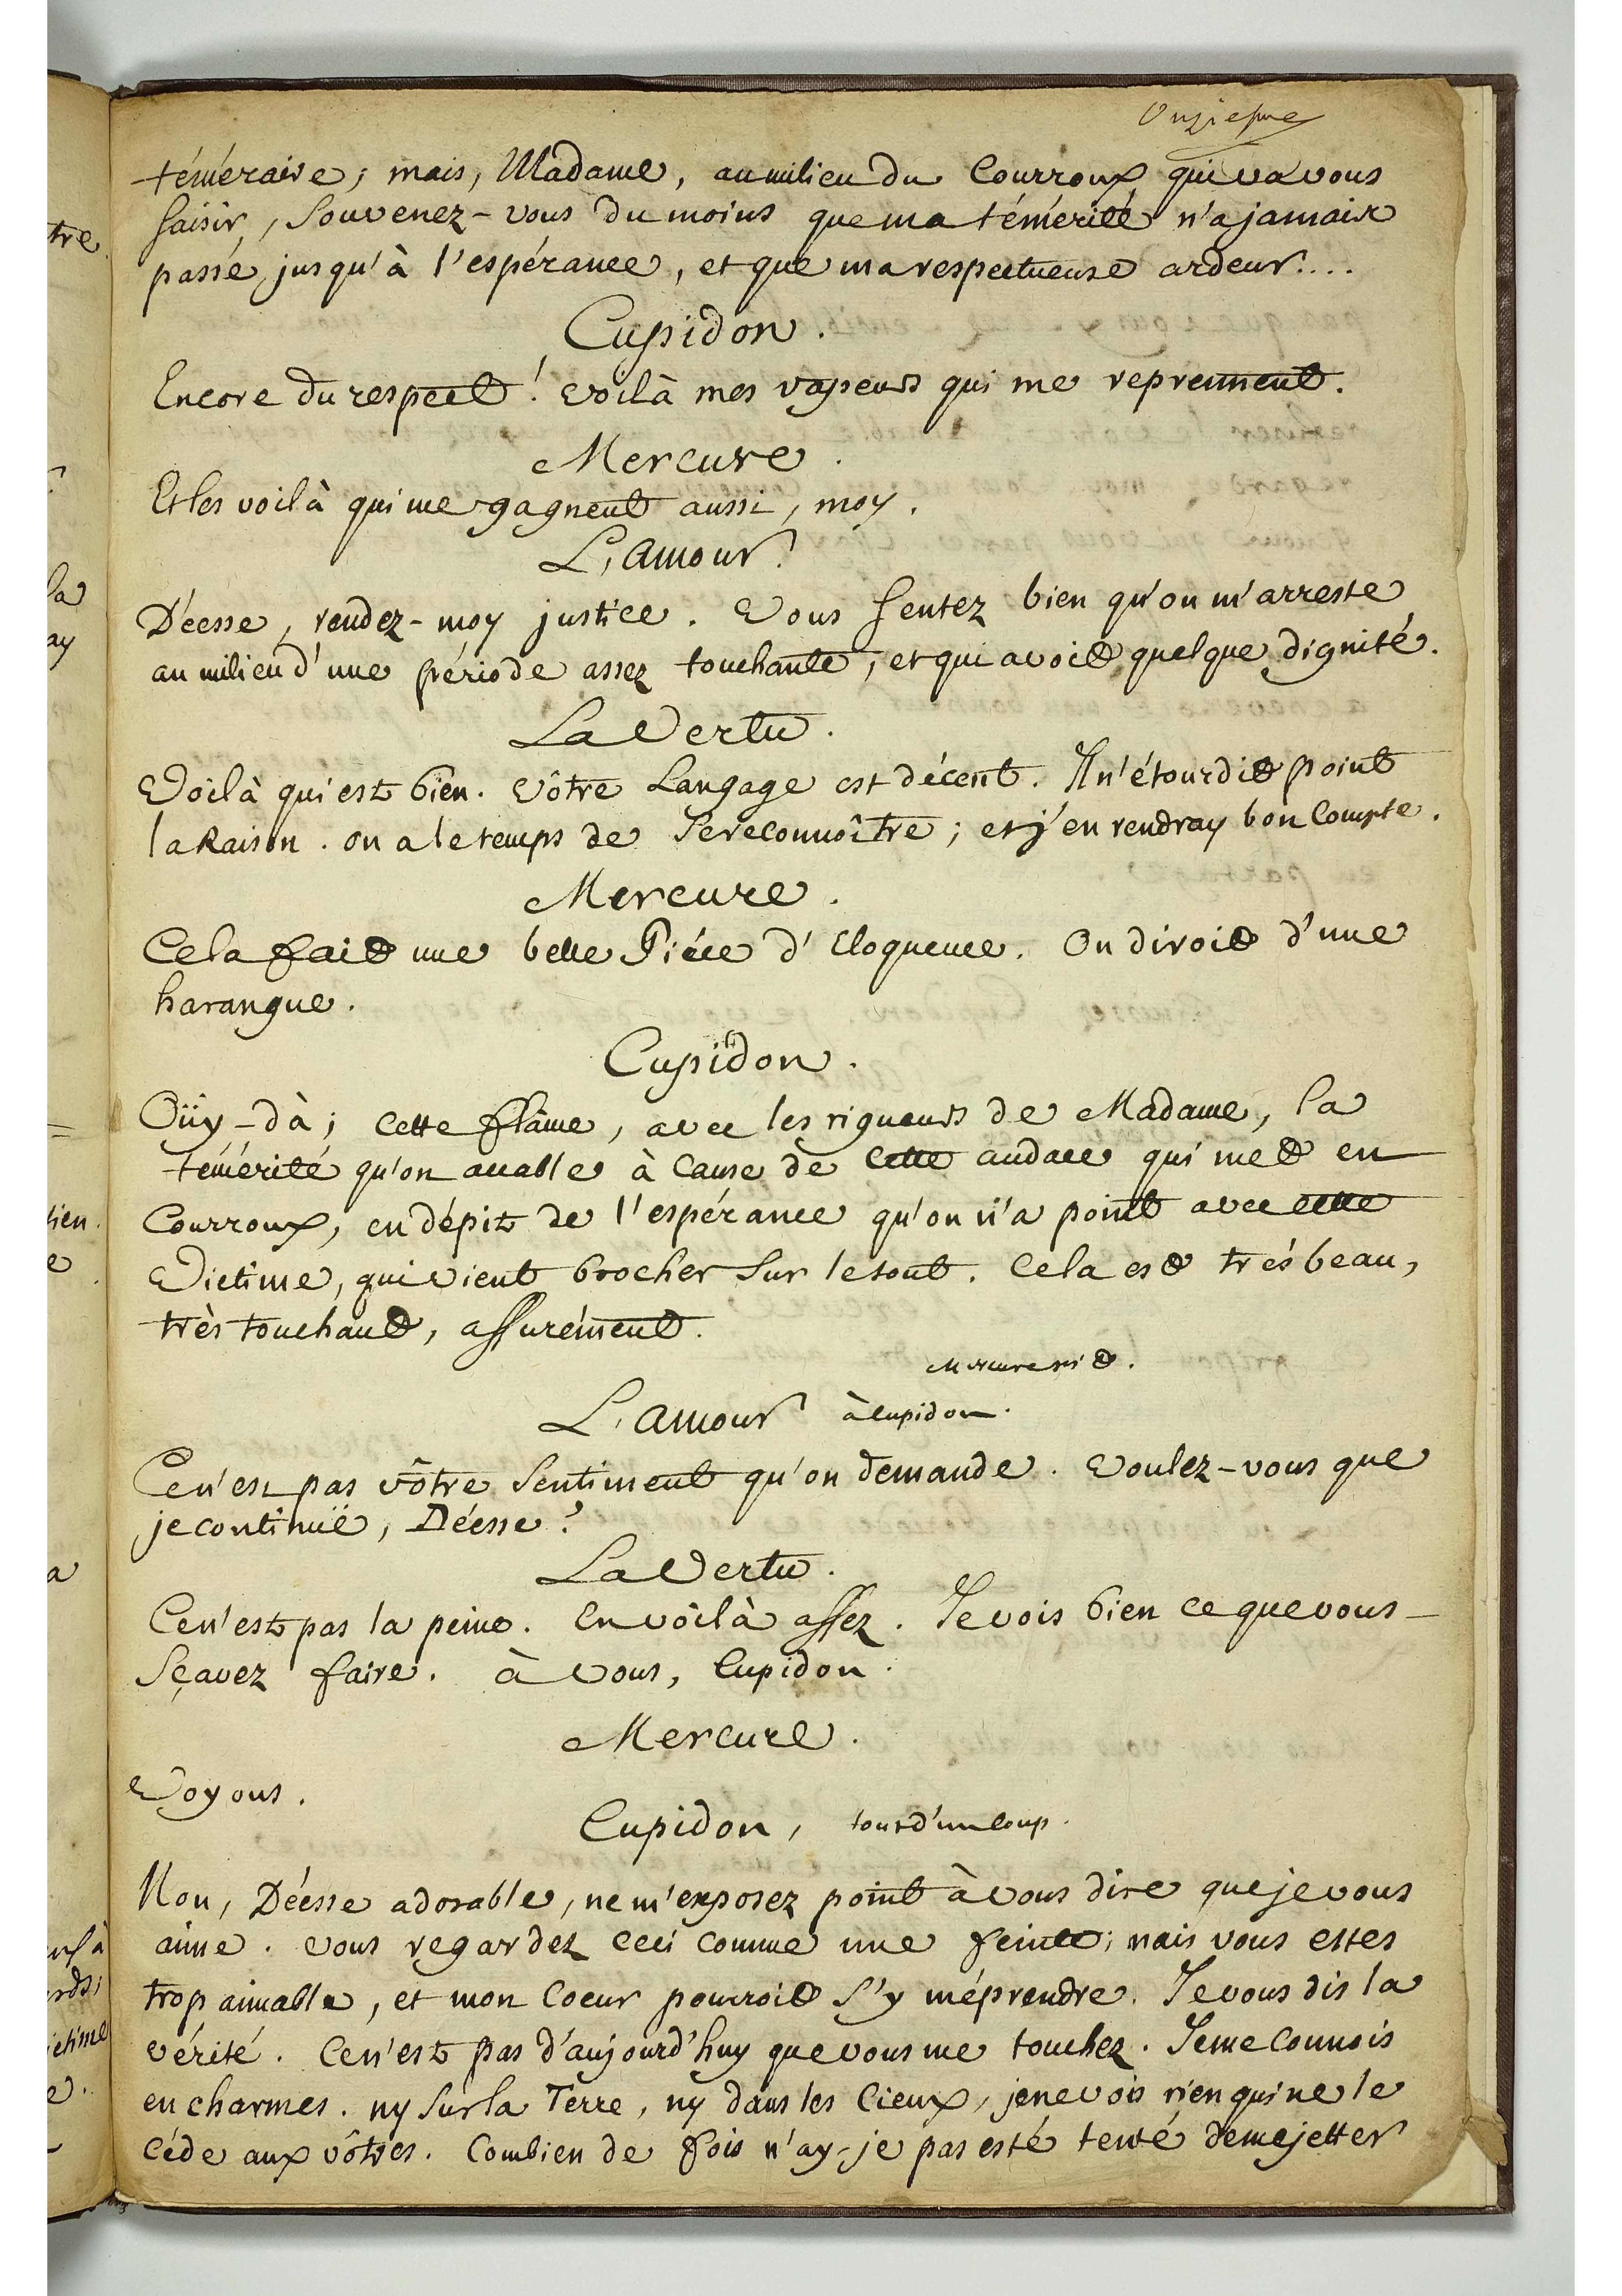 Onziesme
téméraire; mais, Madame, au milieu du Courroux qui va vous
saisir, souvenez-vous du moins que ma témérité n'a jamais
passé jusqu'à l'espérance, et que ma respectueuse ardeur....
Cupidon.
Encore du respect! voilà mes vapeurs qui me reprennent.
Mercure.
Et les voilà qui me gagnent aussi, moy.
L'amour.
Déesse, rendez-moy justice. Vous sentez bien qu'on m'arreste
au milieu d'une période assez touchante, et qui avoit quelque dignité.
La Vertu.
Voilà qui est bien. Vôtre Langage est décent. Il n'étourdit point
la Raison. on a le temps de se reconnoître; et j'en rendray bon Compte.
Mercure.
Cela fait une belle Piéce d'Eloquence. On diroit d'une
harangue.
Cupidon.
Oüy-dà; cette flâme, avec les rigueurs de Madame, la
témérité qu'on accable à Cause de cette audace qui met en
Courroux, en dépit de l'espérance qu'on n'a point avec cette
Victime, qui vient brocher sur le tout. Cela est très beau,
très touchant, assurément.
Mercure rit.
L'amour à Cupidon.
Ce n'est pas vôtre sentiment qu'on demande. Voulez-vous que
je continüe, Déesse?
La Vertu.
Ce n'est pas la peine. En voilà assez. Je vois bien ce que vous
sçavez faire. à vous, Cupidon.
Mercure.
Voyons.
Cupidon, tout d'un Coup.
Non, Déesse adorable, ne m'exposez point à vous dire que je vous
aime. vous regardez ceci comme une feinte; mais vous estes
trop aimable, et mon Coeur pourroit s'y méprendre. Je vous dis la
vérité. Ce n'est pas d'aujourd'huy que vous me touchez. Je me Connois
en charmes. ny sur la Terre, ny dans les Cieux, je ne vois rien qui ne le
Céde aux vôtres. Combien de fois n'ay-je pas esté tenté de me jetter